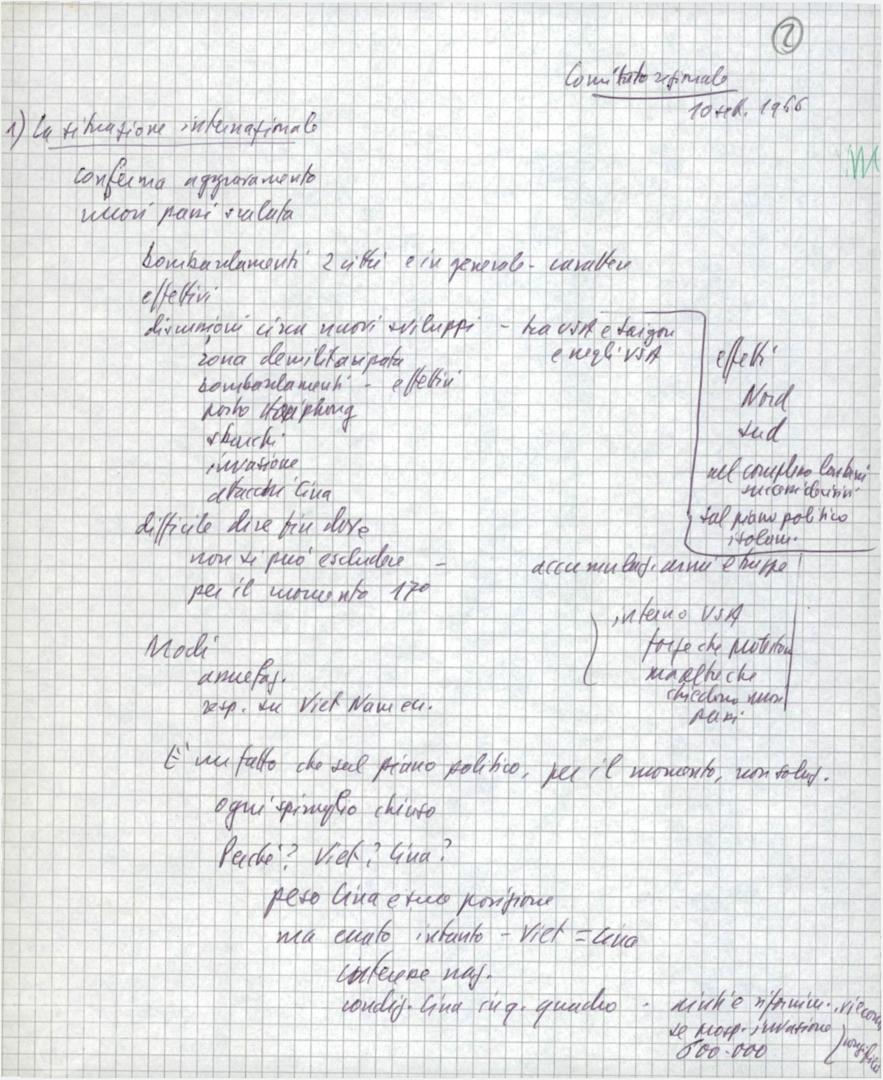 2
Comitato regionale
10 set. 1966
1) La situazione internazionale
conferma aggravamento
nuovi passi scalata
bombardamenti 2 città e in generale - carattere
effettivi
discussioni circa nuovi sviluppi - tra USA e Saigon
e negli USA
zona demilitarizzata
bombardamenti - effettivi
porto Haiphong
sbarchi
invasione
attacchi Cina
effetti
Nord
Sud
nel complesso lontani
successi decisivi
sul piano politico
isolam.
difficile dire fin dove
non si può escludere -
per il momento 170
accumulaz. armi e truppe
interno USA
forze che protestano
ma altre che
chiedono nuovi
passi
Modi
assuefaz.
resp. su Viet Nam
È un fatto che sul piano politico, per il momento, non soluz.
ogni spiraglio chiuso
Perché? Viet? Cina?
peso Cina e sua posizione
ma errato intanto - Viet = Cina
interesse naz.
condiz. Cina in q. quadro -
se prosp. invasione
600.000